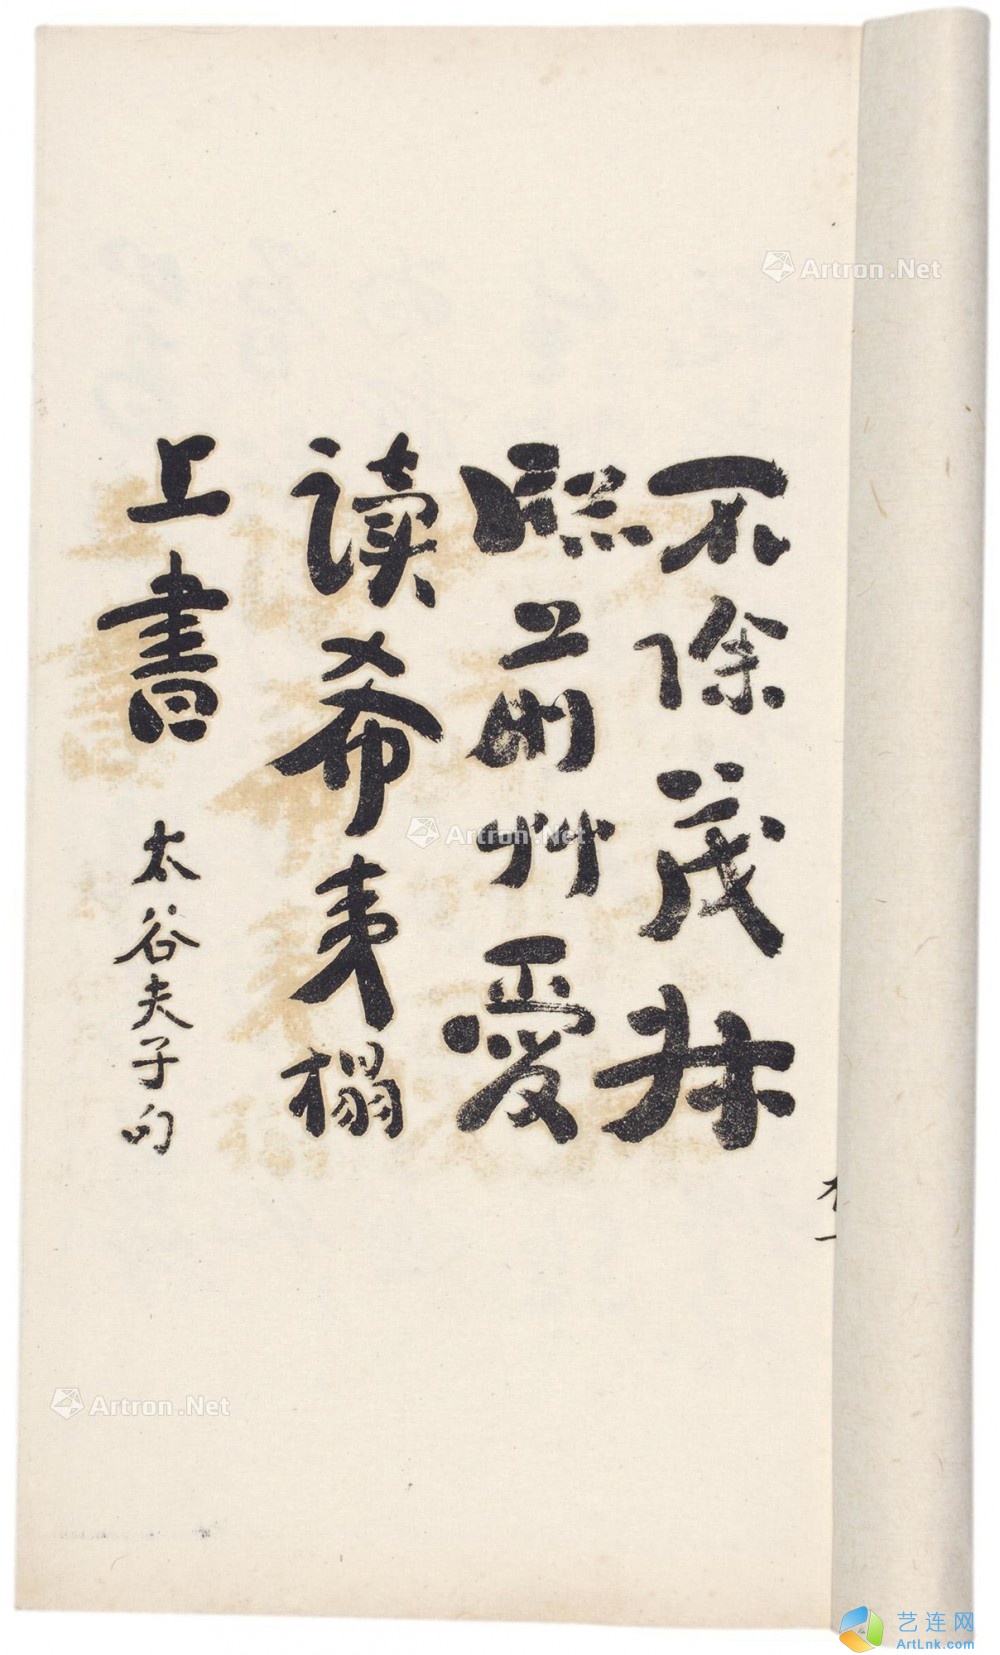 不除茂叔
牕前艸愛
读希夷榻
上書
太谷夫子句
Artron.Net
Artron.Net
Artron.Net
艺连网
ArtLnk.com